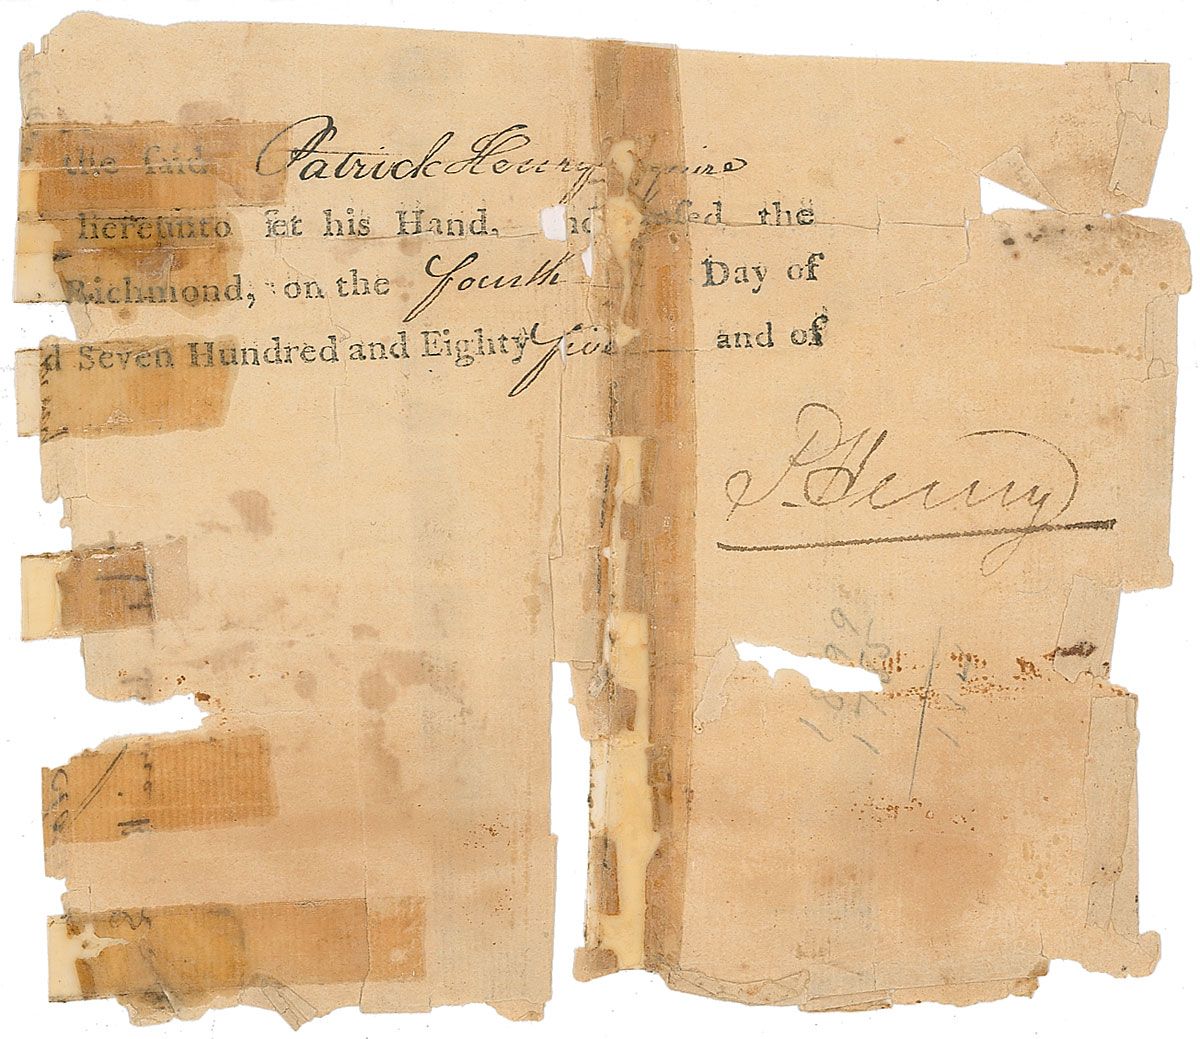 the ſaid Patrick Henry
hereunto ſet his Hand, the
Richmond, on the fourth Day of
d Seven Hundred and Eighty five and of
P. Henry
1899
1785